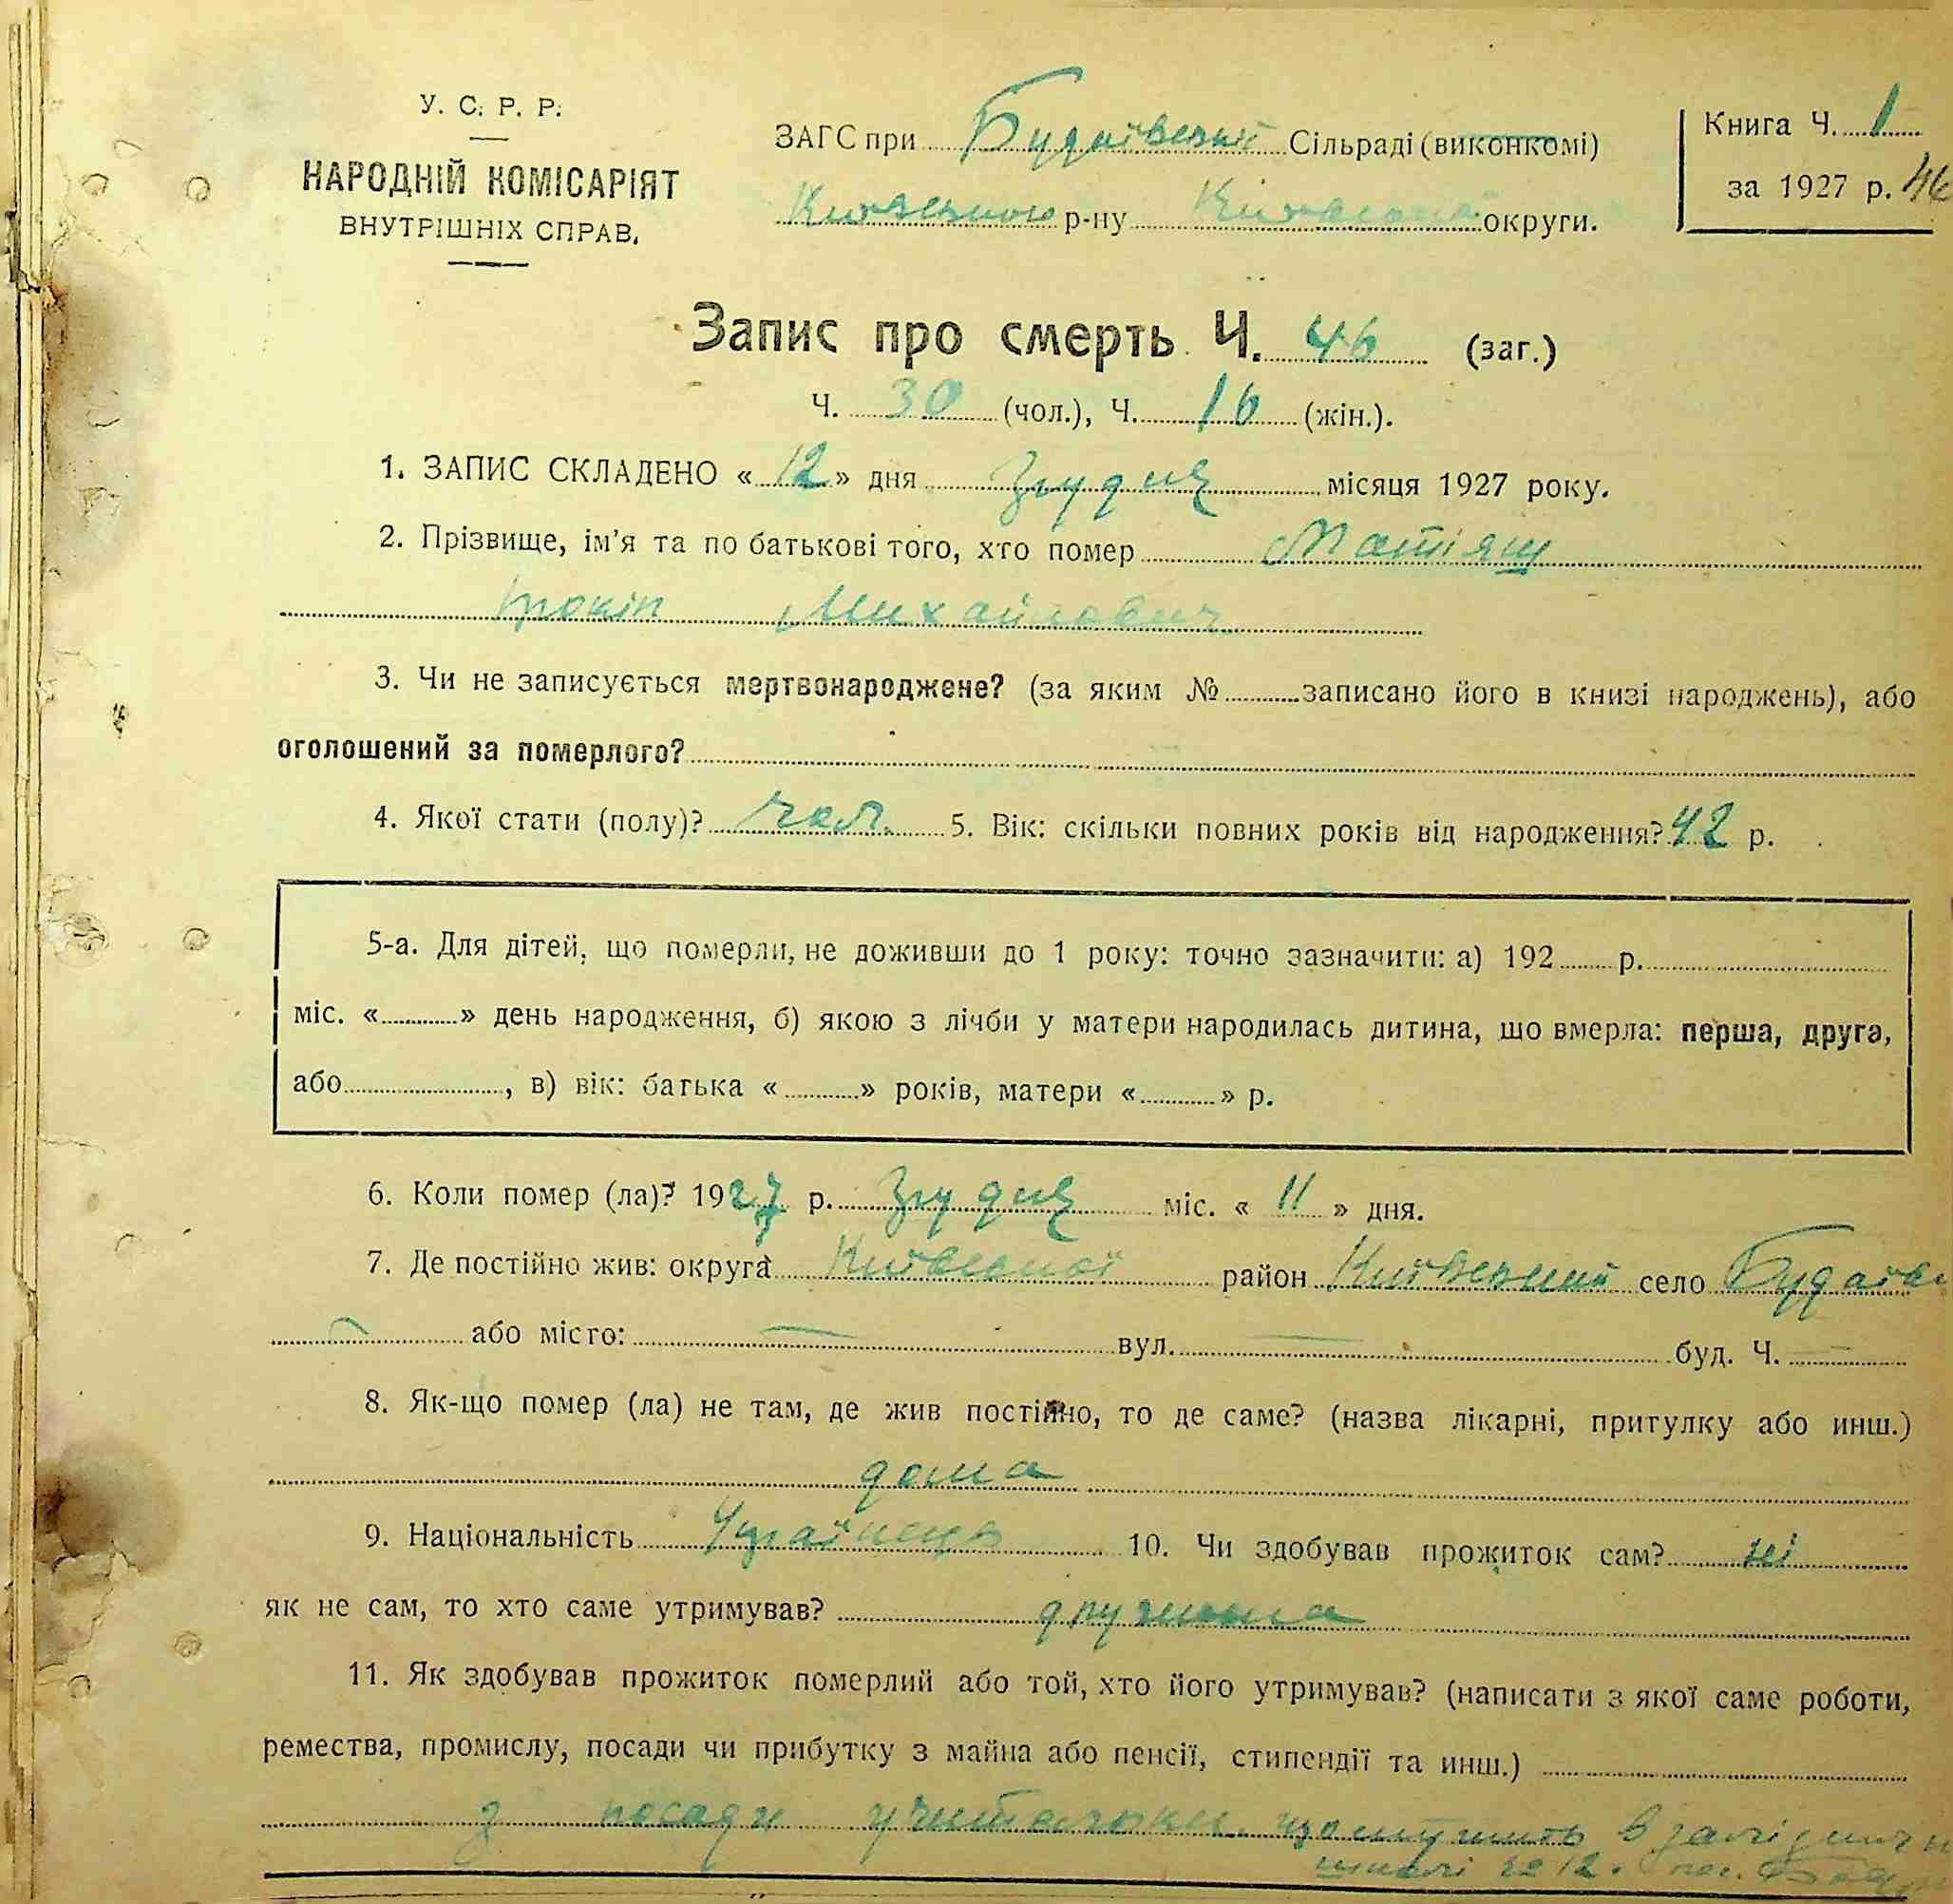 У. С. Р. Р.
НАРОДНІЙ КОМІСАРІЯТ
ВНУТРІШНІХ СПРАВ.
ЗАГС при Будаївській Сільраді (виконкомі)
Київського р-ну Київської округи.
Книга Ч. 1
за 1927 р. 46
Запис про смерть Ч. 46 (заг.)
Ч. 30 (чол.), Ч. 16 (жін.).
1. ЗАПИС СКЛАДЕНО « 12 » дня Грудня місяця 1927 року.
2. Прізвище, ім’я та по батькові того, хто помер Матіящ
Прокіп Михайлович
3. Чи не записується мертвонароджене? (за яким № записано його в книзі народжень), або
оголошений за померлого?
4. Якої стати (полу)? чол. 5. Вік: скільки повних років від народження? 42 р.
5-а. Для дітей, що померли, не доживши до 1 року: точно зазначити: а) 192 р.
міс. « » день народження, б) якою з лічби у матери народилась дитина, що вмерла: перша, друга,
або , в) вік: батька « » років, матери « » р.
6. Коли помер (ла)? 1927 р. Грудня міс. « 11 » дня.
7. Де постійно жив: округа Київської район Київський село Будаївк
або місто: — вул. — буд. Ч. —
8. Як-що помер (ла) не там, де жив постійно, то де саме? (назва лікарні, притулку або инш.)
дома
9. Національність Українець 10. Чи здобував прожиток сам? ні
як не сам, то хто саме утримував? дружина
11. Як здобував прожиток померлий або той, хто його утримував? (написати з якої саме роботи,
ремества, промислу, посади чи прибутку з майна або пенсії, стипендії та инш.)
з посади учительки, що служить в залізничн
школі № 12.